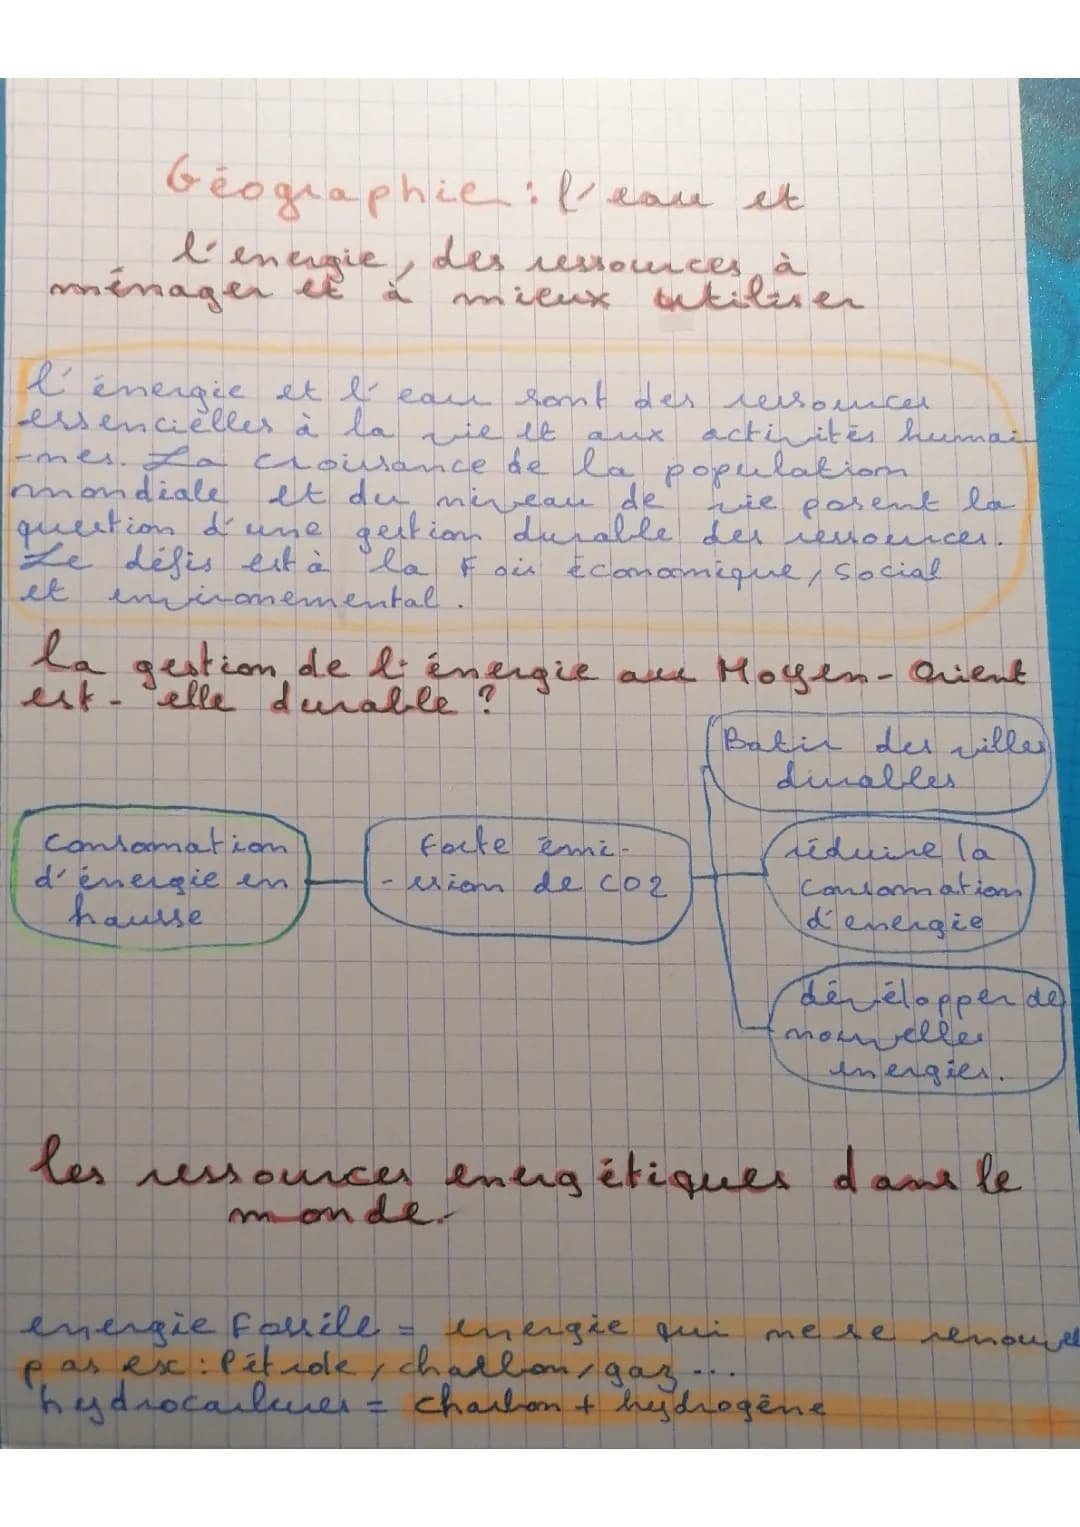 Géographie : l'eau et
l'énergie, des ressources à
ménager et à mieux utiliser
l'énergie et l'eau sont des ressources
essencielles à la vie et aux activités humai
-nes. La croissance de la population
mondiale et du niveau de vie posent la
question d'une gestion durable des ressources.
Le défis est à la Fois économique, social
et environemental.
la gestion de l'énergie au Moyen-Orient
est-elle durable ?
Batir des villes
durables
Consomation
d'énergie en
hausse
forte émi-
-ssion de CO2
réduire la
consomation
d'energie
dévélopper de
nouvelles
energies.
les ressources energétiques dans le
monde.
energie Fossile = energie qui ne se renouvel
pas ex : Pétrole, charbon, gaz ...
hydrocarbures = charbon + hydrogène